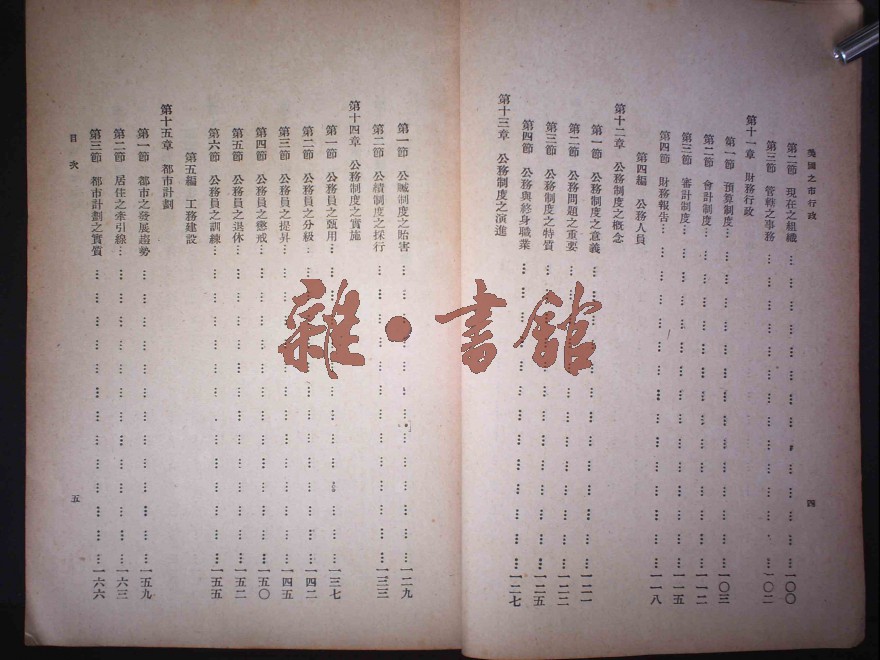 美國之市行政
第二節 現在之組織 一〇〇
第三節 管轄之事務 一〇二
第十一章 財務行政
第一節 預算制度 一〇三
第二節 會計制度 一一二
第三節 審計制度 一一五
第四節 財務報告 一一八
第四編 公務人員
第十二章 公務制度之概念
第一節 公務制度之意義 一二一
第二節 公務問題之重要 一二二
第三節 公務制度之特質 一二五
第四節 公務與終身職業 一二七
第十三章 公務制度之演進
四
第一節 分贓制度之貽害 一二九
第二節 公績制度之採行 一三三
第十四章 公務制度之實施
第一節 公務員之甄用 一三七
第二節 公務員之分級 一四二
第三節 公務員之提昇 一四五
第四節 公務員之懲戒 一五〇
第五節 公務員之退休 一五二
第六節 公務員之訓練 一五五
第五編 工務建設
第十五章 都市計劃
第一節 都市之發展趨勢 一五九
第二節 居住之牽引線 一六三
第三節 都市計劃之實質 一六六
目次
五
雜·書館